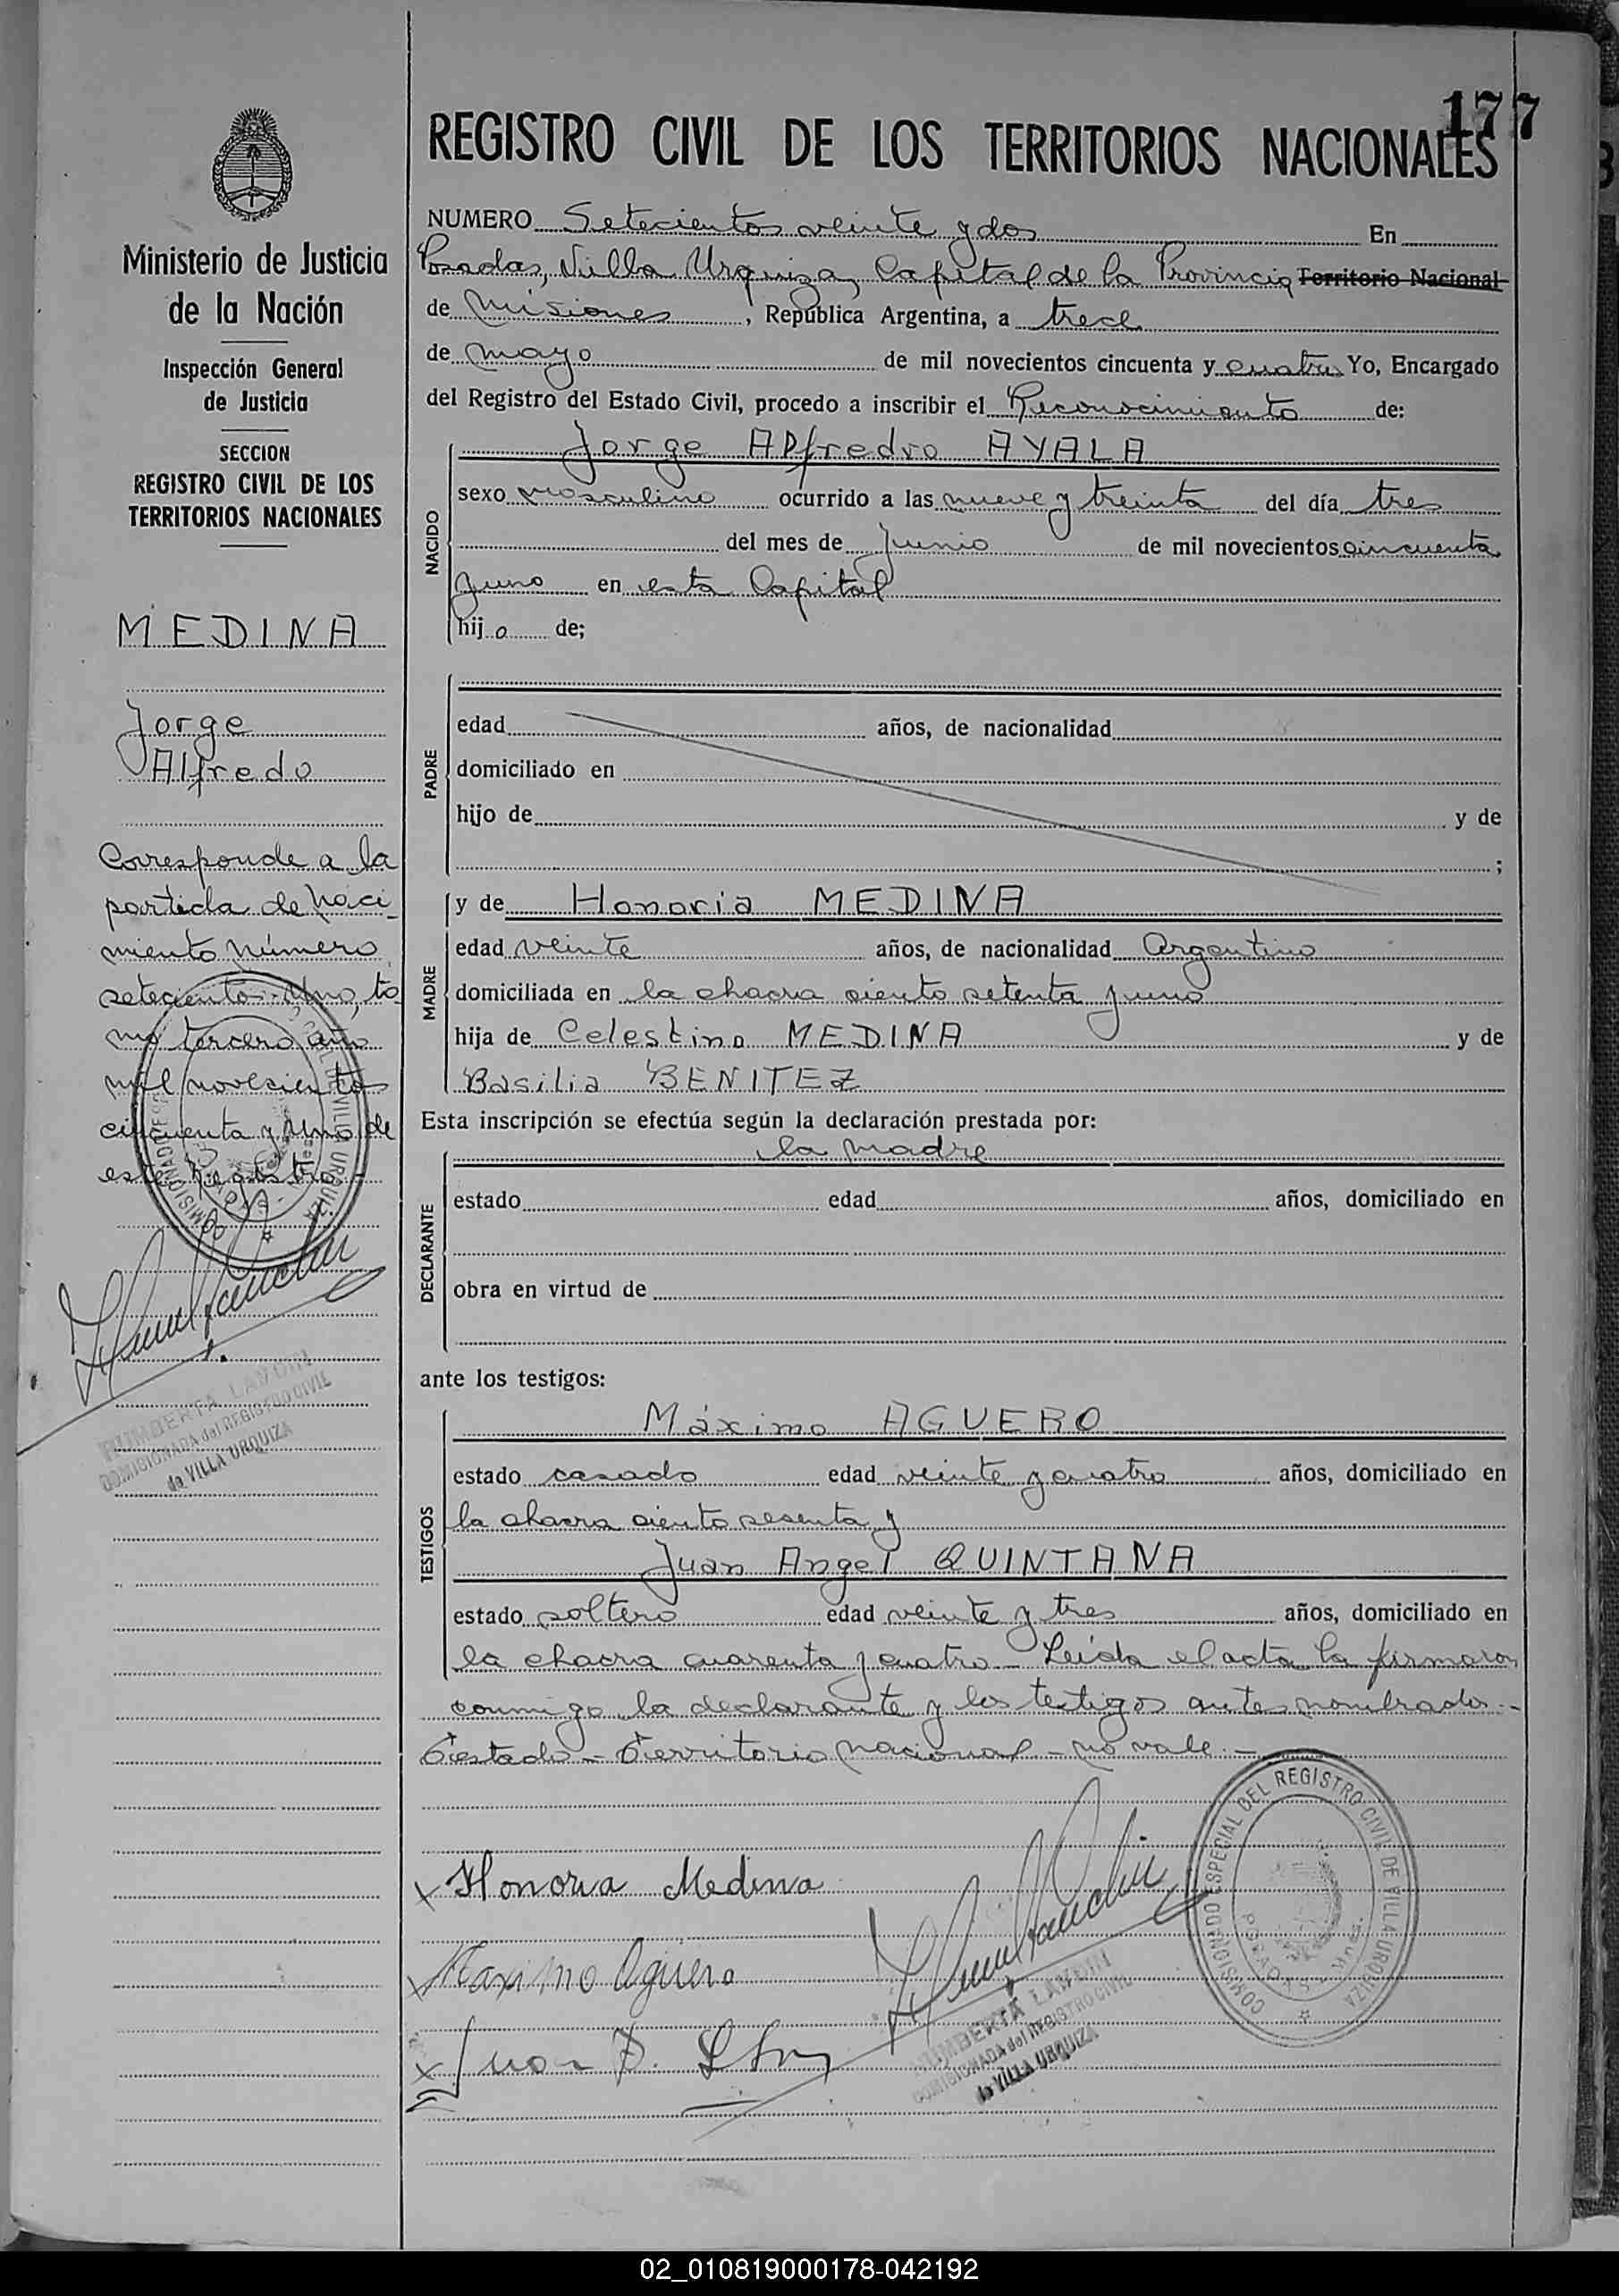 177
REGISTRO CIVIL DE LOS TERRITORIOS NACIONALES
Ministerio de Justicia
de la Nación
Inspección General
de Justicia
SECCION
REGISTRO CIVIL DE LOS
TERRITORIOS NACIONALES
MEDINA
Jorge
Alfredo
Corresponde a la
partida de naci-
miento número
setecientos uno, to
mo tercero año
mil novecientos
cincuenta y uno de
este Registro
COMISIONADO VILLA URQUIZA
HUMBERTA LANDIN
COMISIONADA del REGISTRO CIVIL
de VILLA URQUIZA
NUMERO Setecientos veinte y dos En
Posadas, Villa Urquiza, Capital de la Provincia Territorio Nacional
de Misiones, República Argentina, a trece
de mayo de mil novecientos cincuenta y cuatro Yo, Encargado
del Registro del Estado Civil, procedo a inscribir el Reconocimiento de:
NACIDO
Jorge Alfredo AYALA
sexo masculino ocurrido a las nueve y treinta del día tres
del mes de Junio de mil novecientos cincuenta
y uno en esta Capital
hijo de;
PADRE
edad años, de nacionalidad
domiciliado en
hijo de y de
;
MADRE
y de Honoria MEDINA
edad veinte años, de nacionalidad Argentina
domiciliada en la chacra ciento setenta y uno
hija de Celestino MEDINA y de
Basilia BENITEZ
Esta inscripción se efectúa según la declaración prestada por:
DECLARANTE
la madre
estado edad años, domiciliado en
obra en virtud de
ante los testigos:
TESTIGOS
Máximo AGUERO
estado casado edad veinte y cuatro años, domiciliado en
la chacra ciento sesenta y
Juan Angel QUINTANA
estado soltero edad veinte y tres años, domiciliado en
la chacra cuarenta y cuatro - Leída el acta la firmaron
conmigo la declarante y los testigos antes nombrados.-
Testado - Territorio nacional - no vale.-
x Honoria Medina
x Maximo Aguero
x Juan
HUMBERTA LANDIN
COMISIONADA del REGISTRO CIVIL
de VILLA URQUIZA
COMISIONADO ESPECIAL DEL REGISTRO CIVIL DE VILLA URQUIZA
POSADAS - Mnes.
02_010819000178-042192